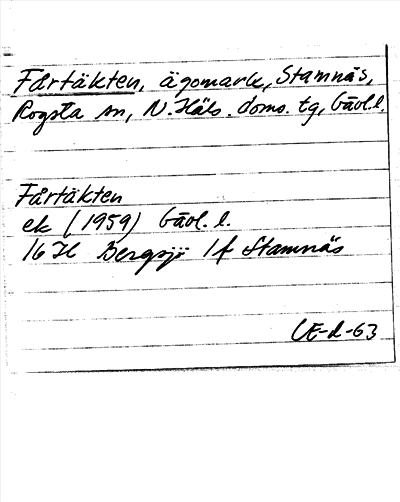 Fårtäkten, ägomark, Stamnäs,
Rogsta sn, N. Häls. doms. tg, Gävl. l.
Fårtäkten
ek (1959) Gävl. l.
16 H Bergsjö 1 f Stamnäs